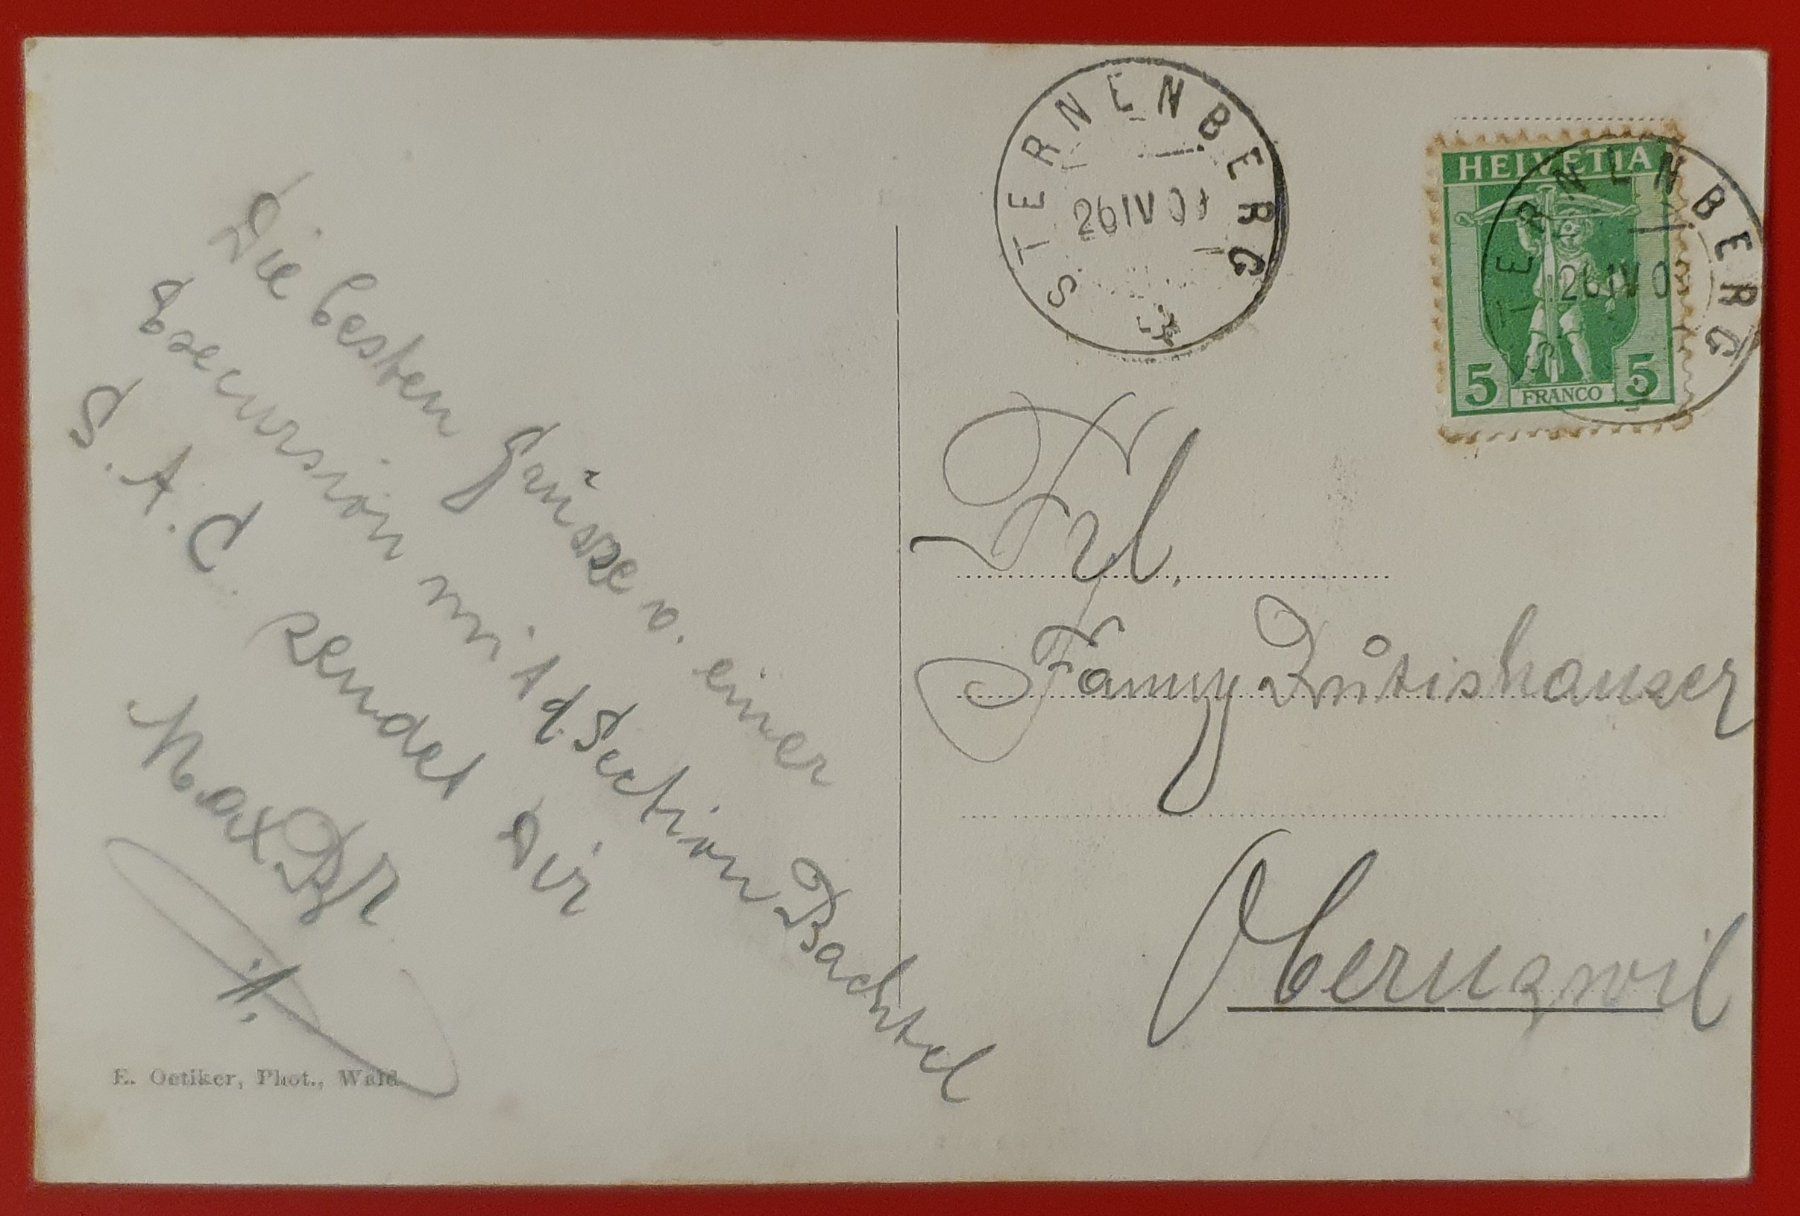 Die besten Grüsse v. einer
Excursion mit d. Section Bachtel
S. A. C. sendet Dir
Max
E. Oetiker, Phot., Wald
STERNENBERG
26 IV 09
HELVETIA
5 FRANCO 5
STERNENBERG
26 IV 09
Frl.
Fanny Růtishauser
Oberuzwil